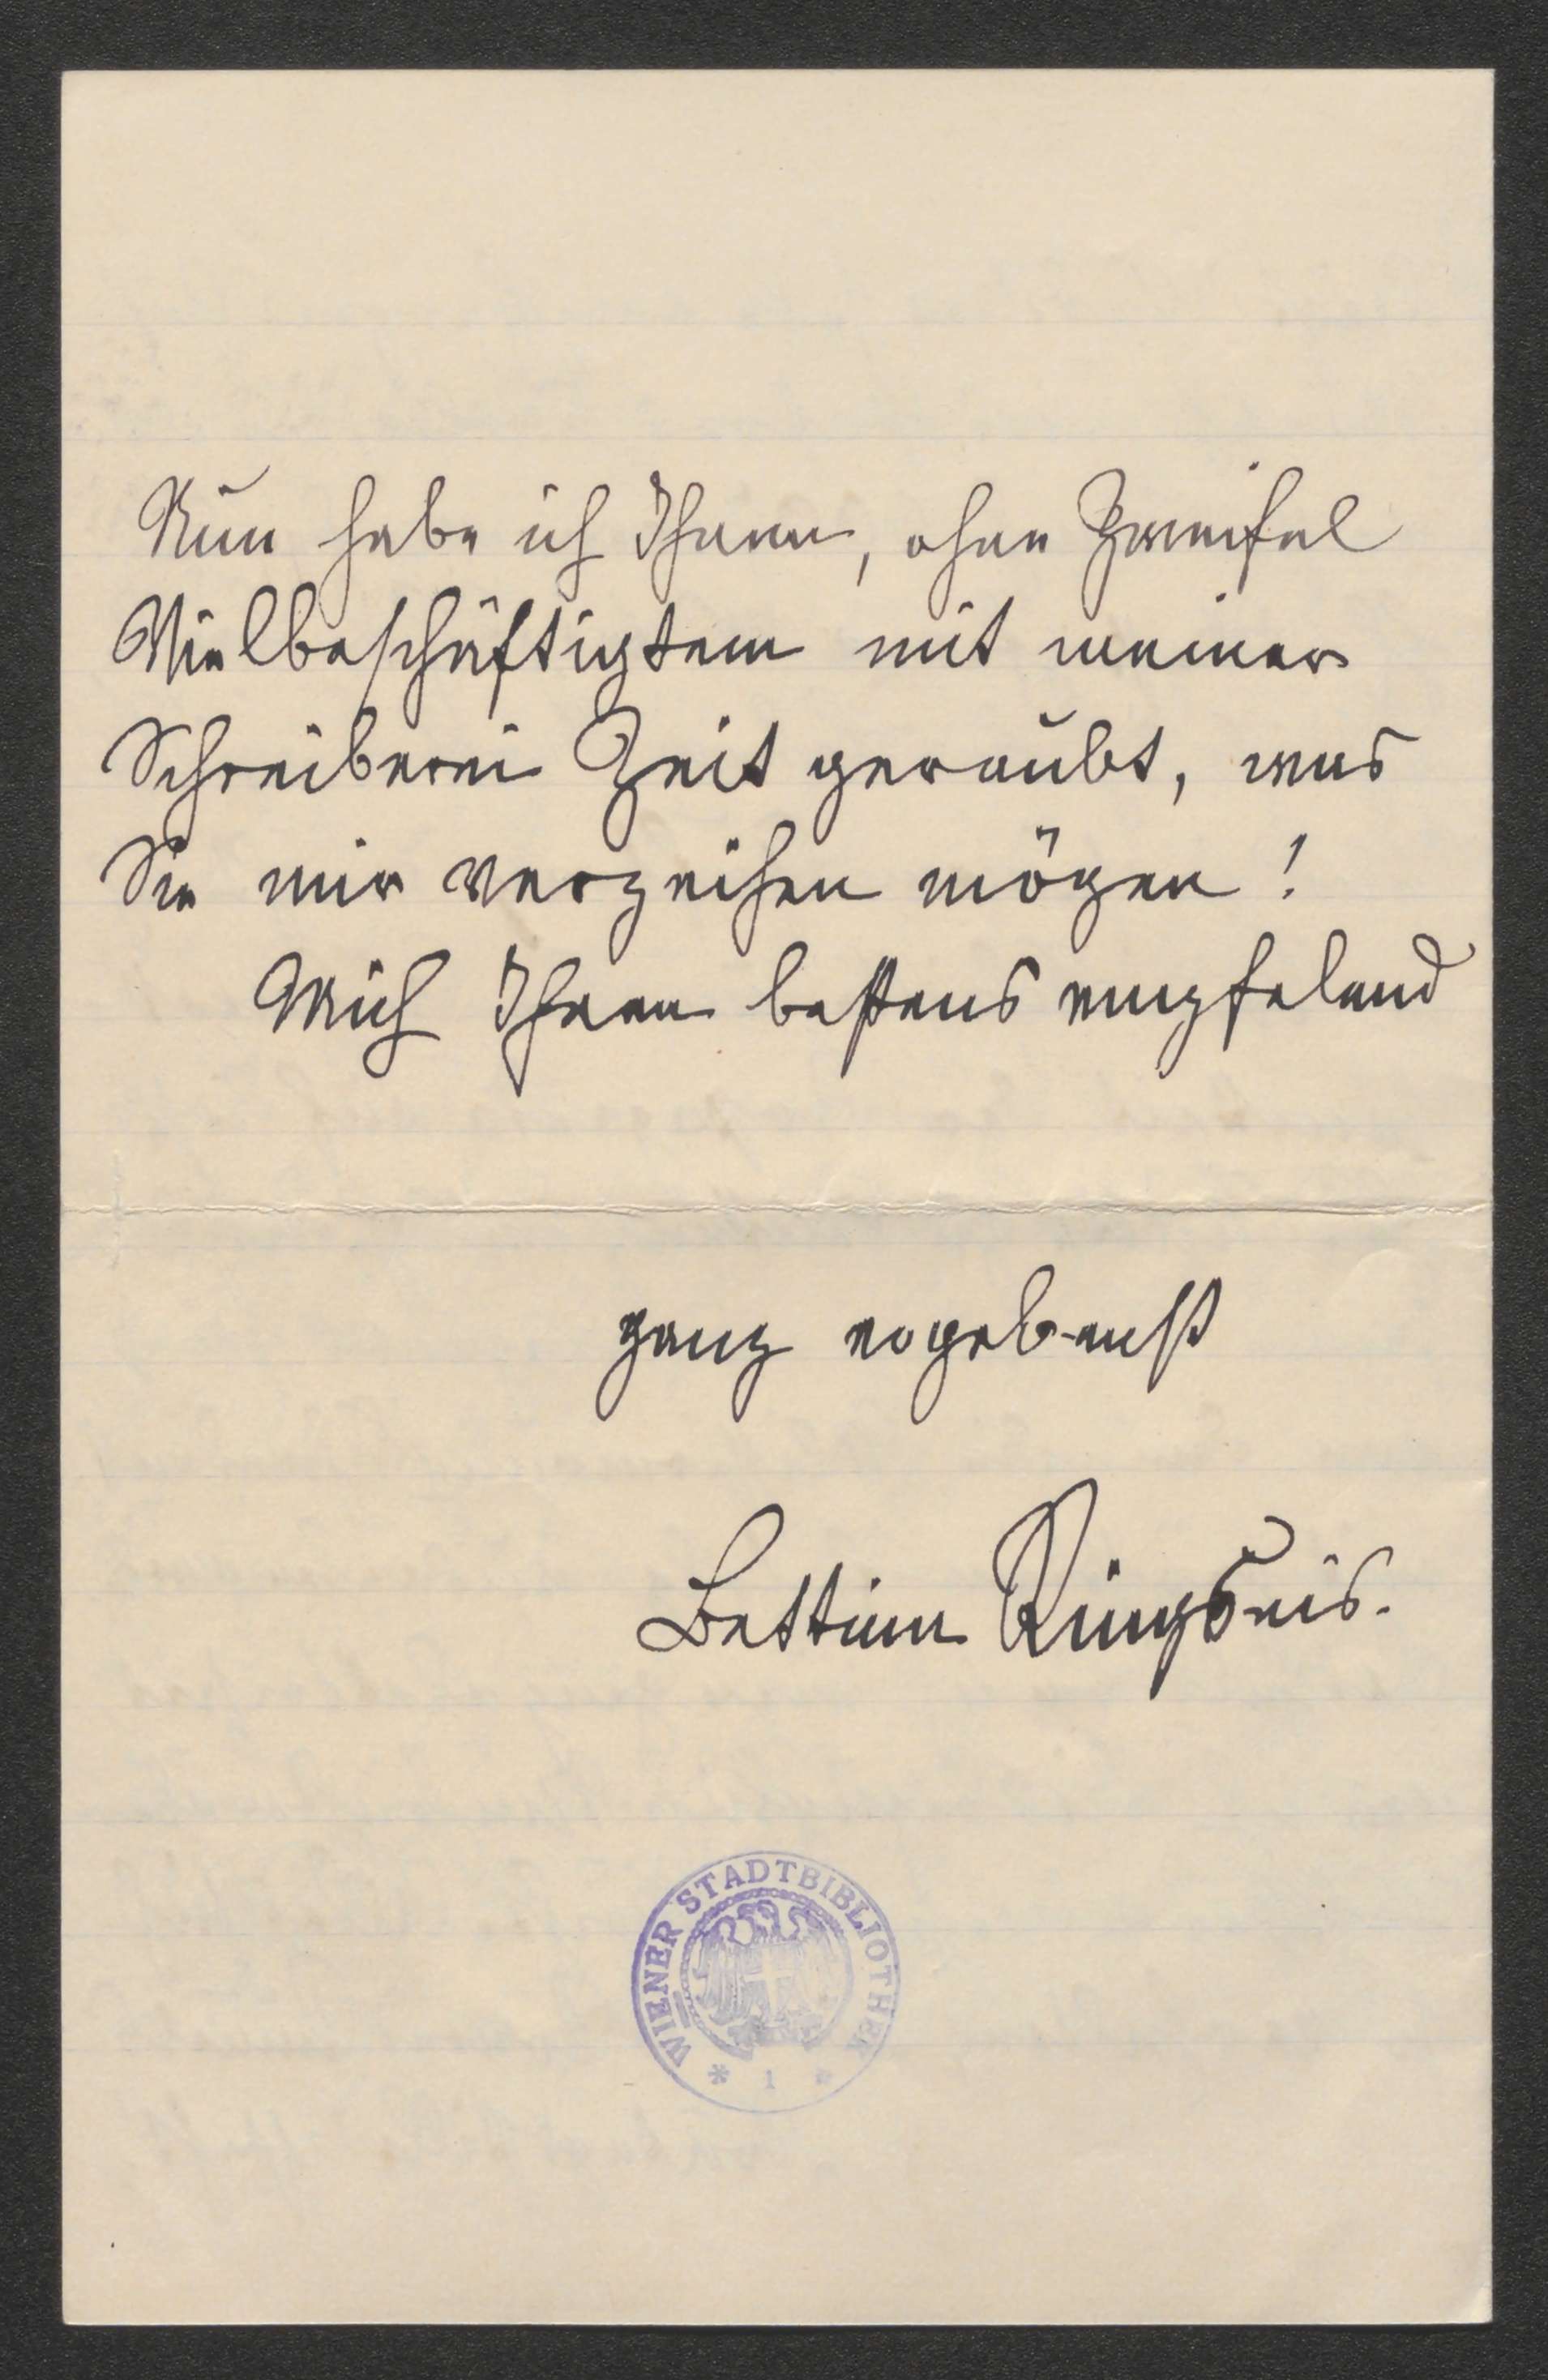 Nun habe ich Ihnen, ohne Zweifel
Vielbeschäftigtem mit meiner
Schreiberei Zeit geraubt, was
Sie mir verzeihen mögen!
Mich Ihnen bestens empfelend
ganz ergebenst
Bettina Ringseis.
WIENER STADTBIBLIOTHEK
* 1 *